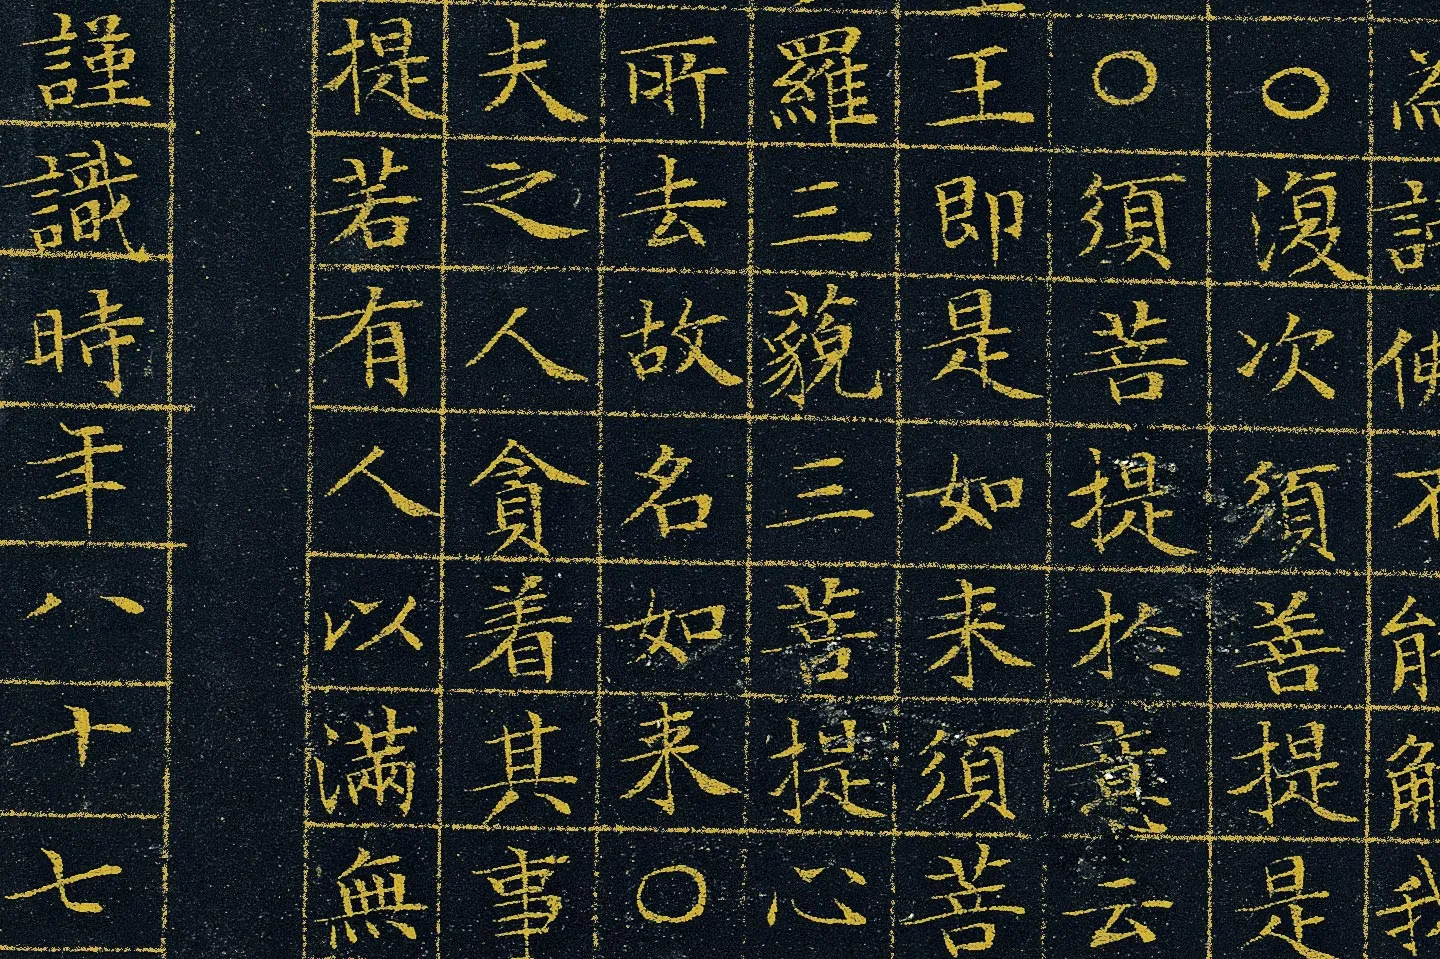 為不能解我
○復次須善提是
○須菩提於意云
王即是如来須菩
羅三藐三菩提心
所去故名如来○
夫之人貪着其事
提若有人以滿無
謹識時年八十七